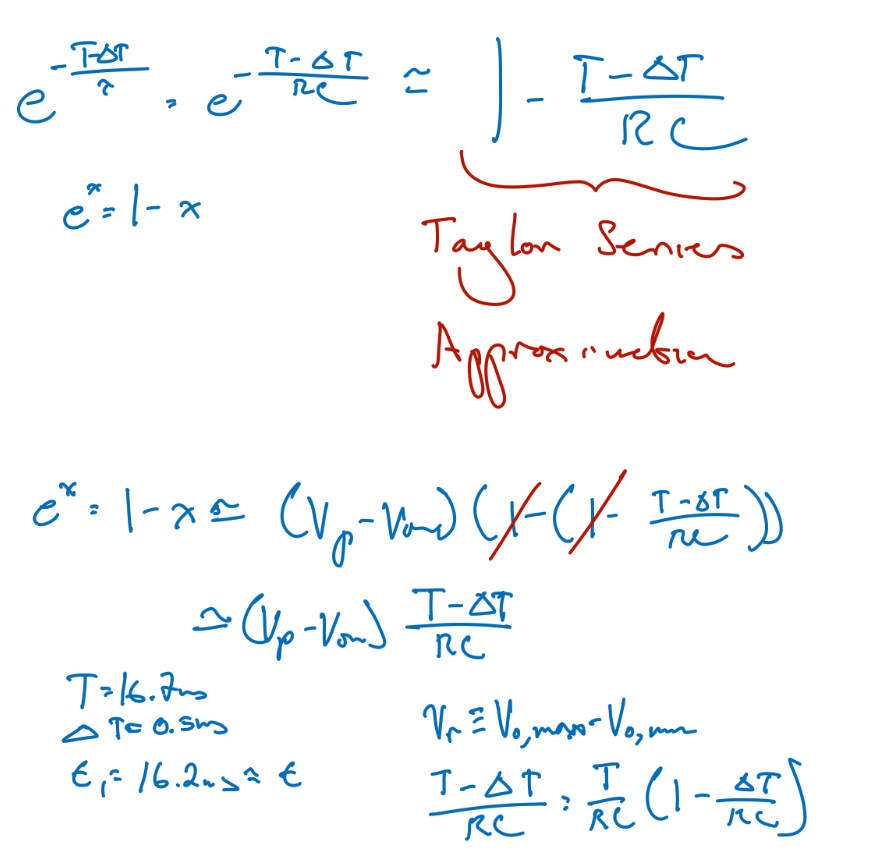 e^{-\frac{T-ΔT}{τ}} = e^{-\frac{T-ΔT}{RC}} ≃ 1 - \frac{T-ΔT}{RC}
e^x = 1 - x
Taylor Series
Approximation
e^x = 1 - x ≃ (V_p - V_{on}) (1 - (1 - \frac{T-ΔT}{RC}))
≃ (V_p - V_{on}) \frac{T-ΔT}{RC}
T = 16.7ms
ΔT = 0.5ms
t_1 = 16.2ms ≈ t
V_r ≡ V_{o,max} - V_{o,min}
\frac{T-ΔT}{RC} = \frac{T}{RC} (1 - \frac{ΔT}{RC})